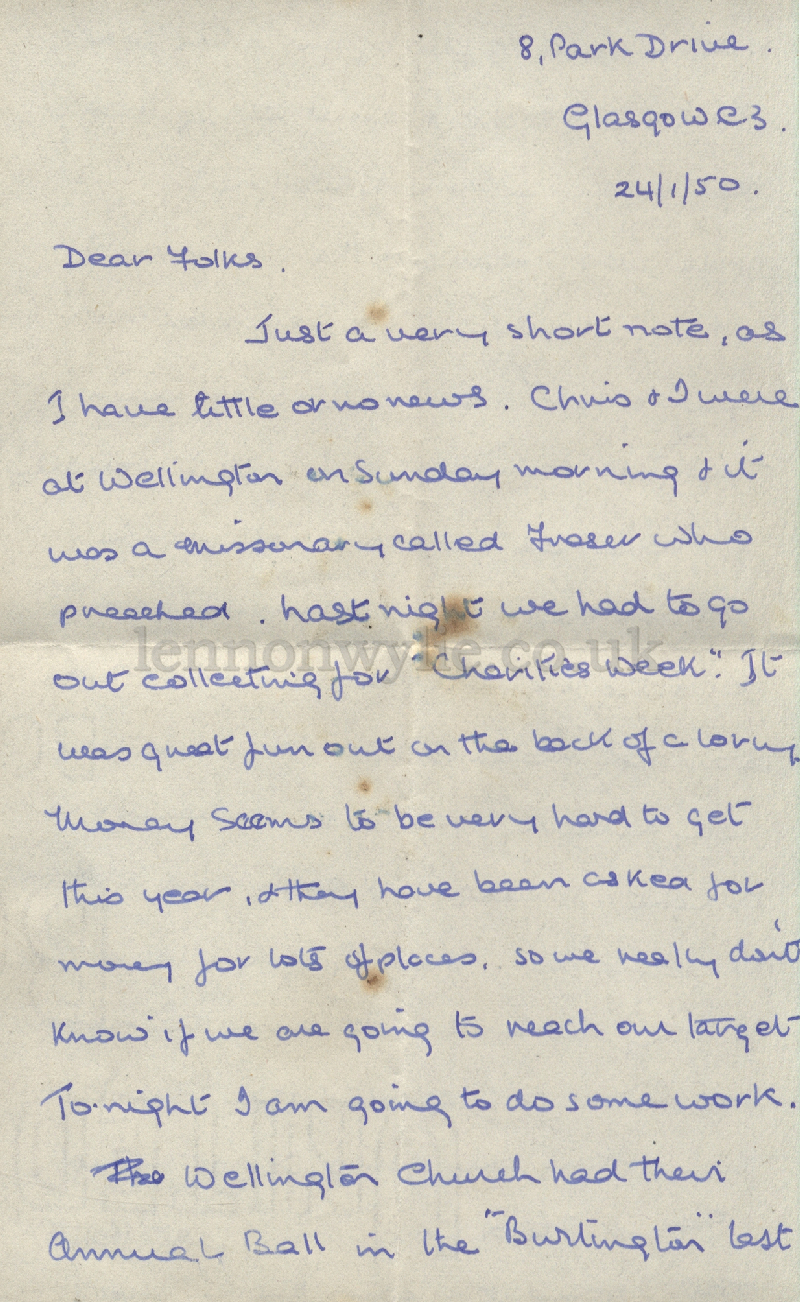 8, Park Drive.
Glasgow C3.
24/1/50.
Dear Folks.
Just a very short note, as
I have little or no news. Chris & I were
at Wellington on Sunday morning & it
was a missionary called Fraser who
preached. Last night we had to go
lennonwylie.co.uk
out collecting for "Charities Week". It
was great fun out on the back of a lorry.
Money seems to be very hard to get
this year, & they have been asked for
money for lots of places, so we really don't
know if we are going to reach our target
To-night I am going to do some work.
The Wellington Church had their
Annual Ball in the "Burlington" last